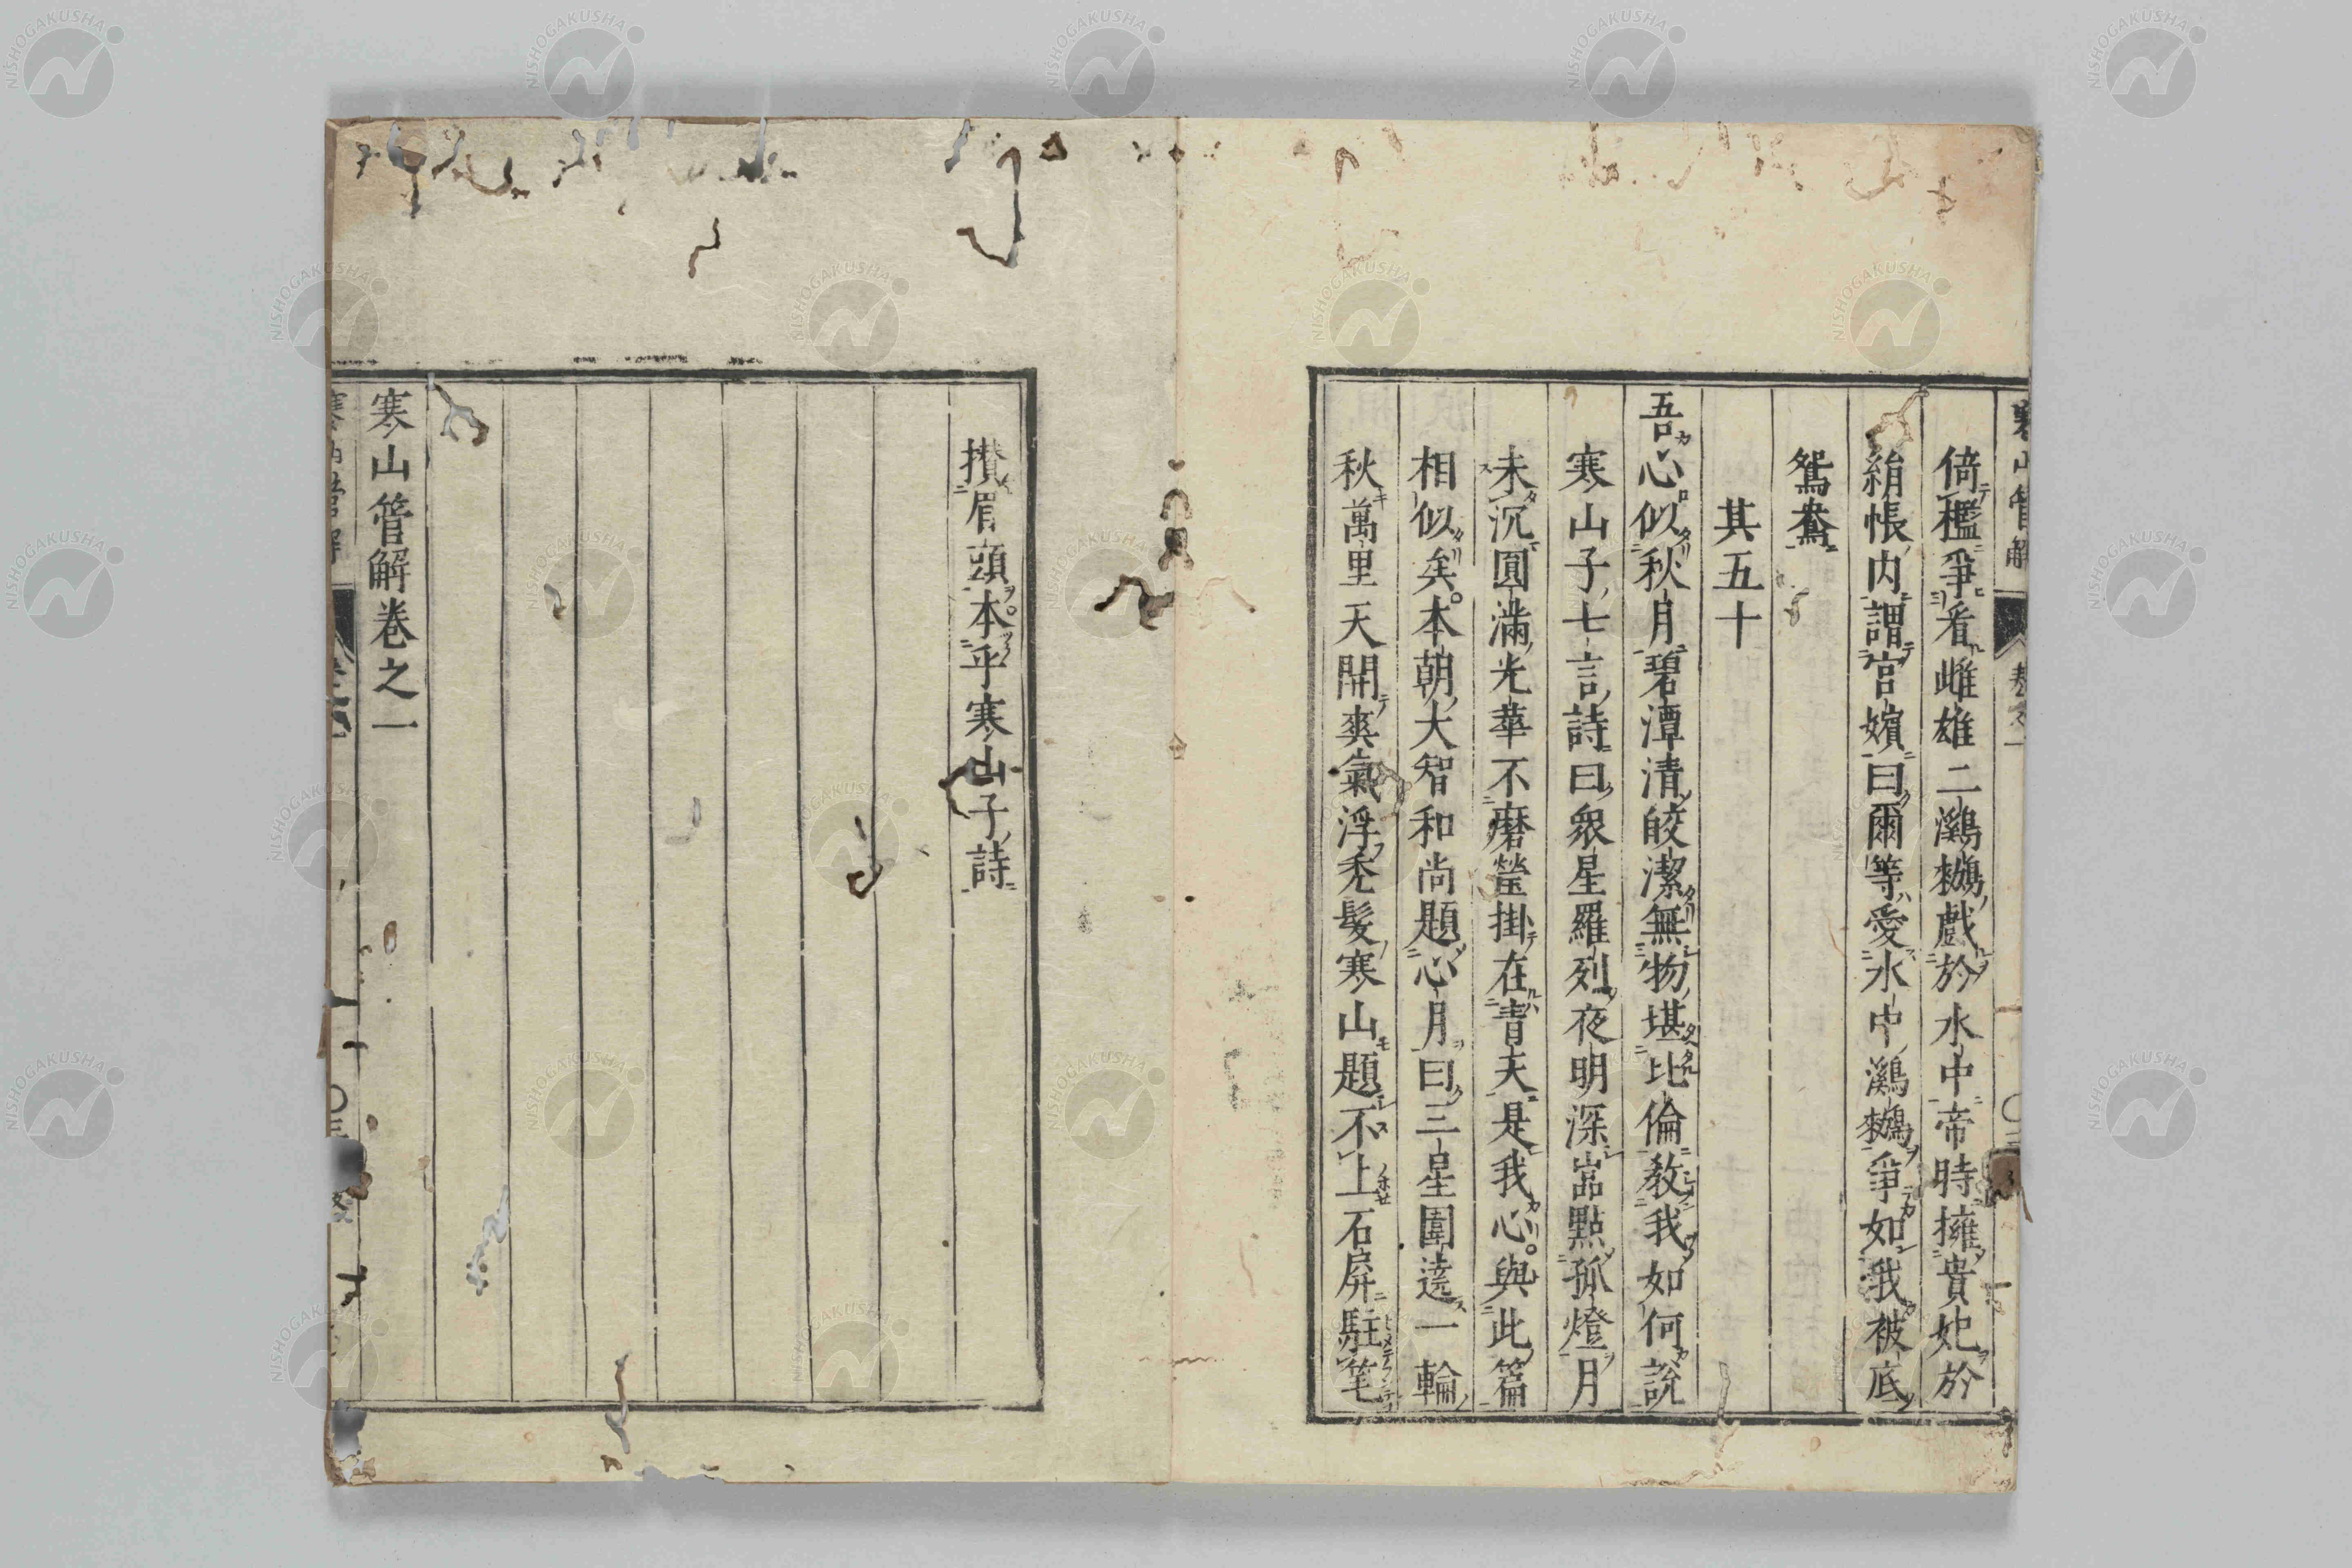 倚檻爭看雌雄二鸂鶒戲於水中帝時擁貴妃於
綃帳内謂宮嬪曰爾等愛水中鸂鶒爭如我被底
鴛鴦
其五十
吾心似秋月碧潭清皎潔無物堪比倫教我如何說
寒山子七言詩曰衆星羅列夜明深嵓點孤燈月
未沉圓滿光華不磨瑩掛在青天是我心與此篇
相似矣本朝大智和尚題心月曰三星圍遶一輪
秋萬里天開爽氣浮禿髮寒山題不上石屏駐筆
攅眉頭本乎寒山子詩
寒山管解卷之一
NISHOGAKUSHA